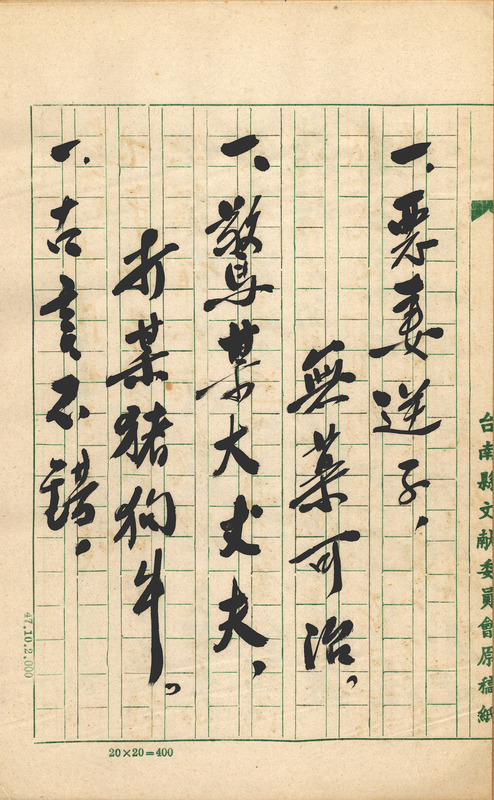 台南縣文献委員會原稿紙
一、惡妻逆子，
無薬可治。
一、驚某大丈夫，
打某猪狗牛。
一、古言不錯，
47.10.2,000
20×20=400